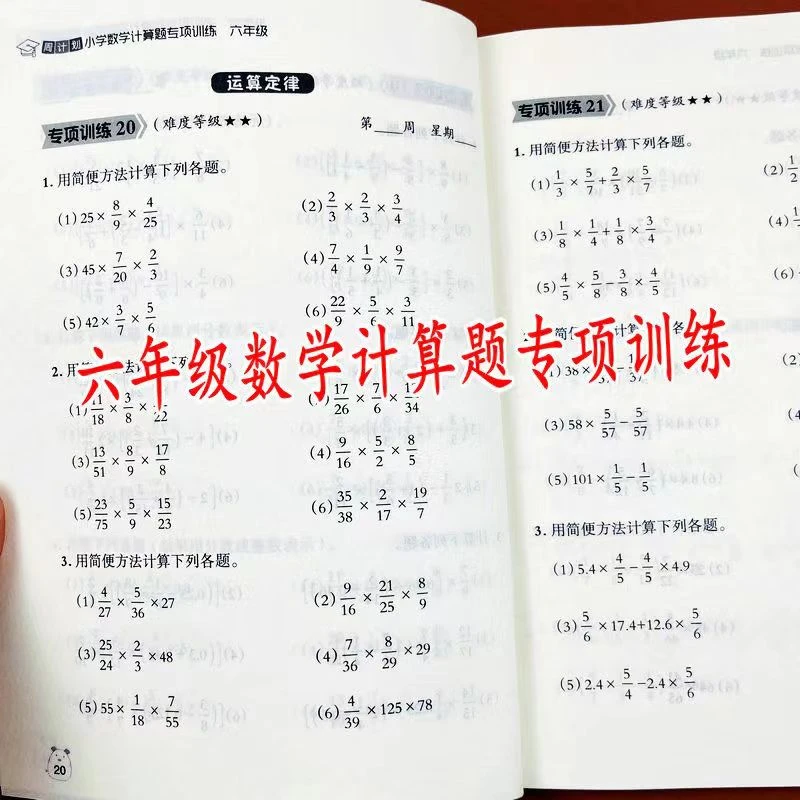 周计划 小学数学计算题专项训练 六年级
运算定律
专项训练 20 (难度等级★★) 第___周 星期___
1. 用简便方法计算下列各题。
(1) 25×8/9×4/25 (2) 2/3×2/3×3/4
(3) 45×7/20×2/3 (4) 7/4×1/9×9/7
(5) 42×3/7×5/6 (6) 22/9×5/6×3/11
六年级数学计算题专项训练
2. 用简便方法计算下列各题。
(1) 11/18×3/8×/22 (2) 17/26×7/6×/34
(3) 13/51×8/9×17/8 (4) 9/16×5/2×8/5
(5) 23/75×5/9×15/23 (6) 35/38×2/17×19/7
3. 用简便方法计算下列各题。
(1) 4/27×5/36×27 (2) 9/16×21/25×8/9
(3) 25/24×2/3×48 (4) 7/36×8/29×29
(5) 55×1/18×7/55 (6) 4/39×125×78
20
专项训练 21 (难度等级★★)
1. 用简便方法计算下列各题。
(1) 1/3×5/7+2/3×5/7 (2)
(3) 1/8×1/4+1/8×3/4 (4)
(5) 4/5×5/8-3/8×4/5 (6)
简便方法计算 各题。
(1) 38× (2)
(3) 58×5/57-5/57
(5) 101×1/5-1/5
3. 用简便方法计算下列各题。
(1) 5.4×4/5-4/5×4.9
(3) 5/6×17.4+12.6×5/6
(5) 2.4×5/4-2.4×5/6